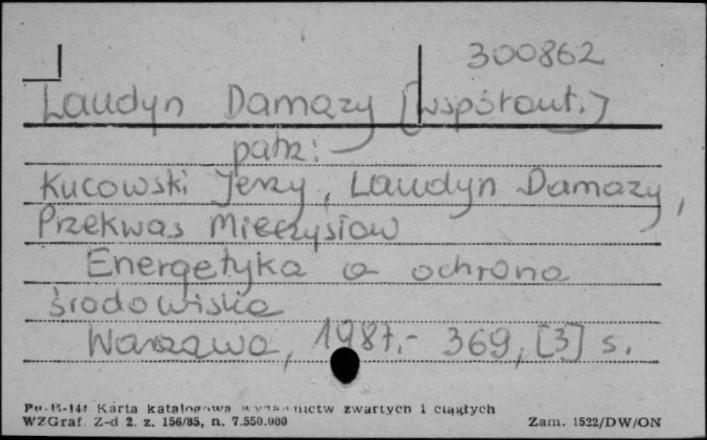 300862
Laudyn Damazy [współaut.]
patrz:
Kucowski Jerzy, Laudyn Damazy,
Przekwas Mieczysław
Energetyka a ochrona
środowiska
Warszawa, 1987.- 369, [3] s.
Pu-B-144 Karta katalogowa wydawnictw zwartych i ciągłych
WZGraf. Z-d 2. z. 156/85, n. 7.550.000 Zam. 1522/DW/ON